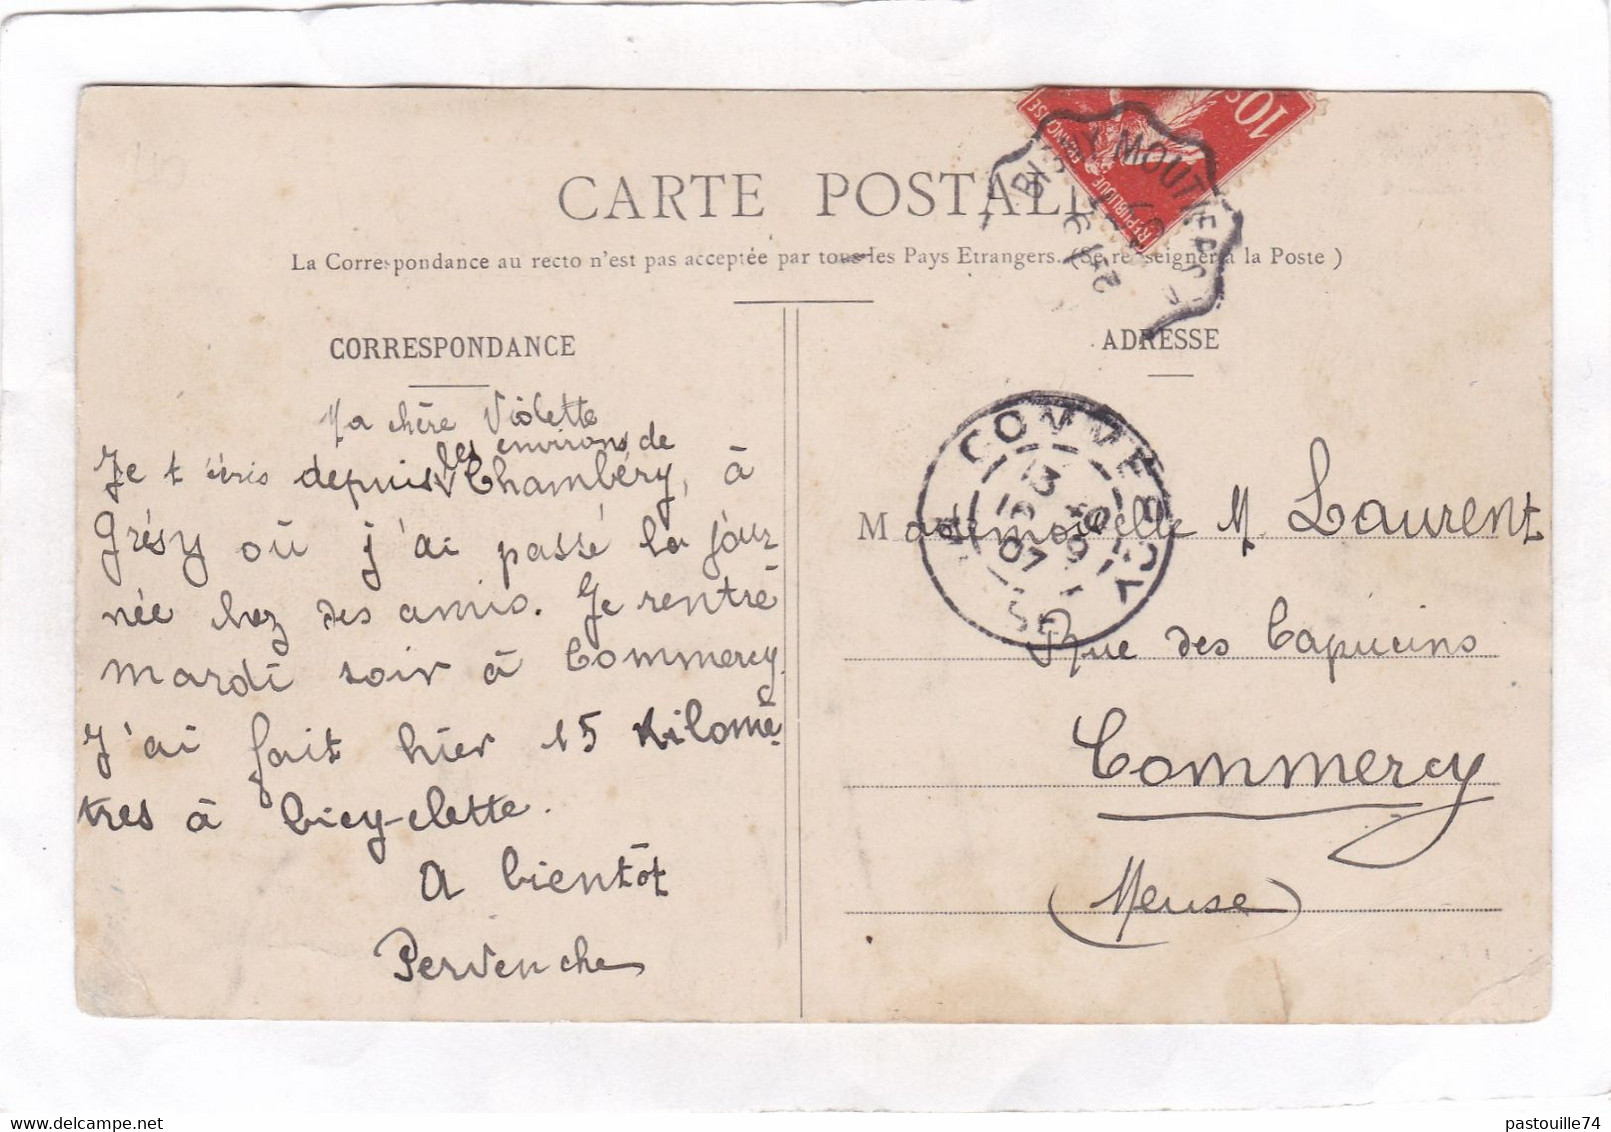 CARTE POSTALE
La Correspondance au recto n'est pas acceptée par tous les Pays Etrangers. (Se renseigner à la Poste )
CORRESPONDANCE
Ma chère Violette
les environs de
Je t'écris depuis V Chambéry, à
Grésy où j'ai passé la jour
née chez des amis. Je rentre
mardi soir à Commercy.
J'ai fait hier 15 kilomè
tres à bicy-clette.
A bientôt
Pervenche
ADRESSE
Mademoiselle M Laurent
Rue des Capucins
Commercy
(Meuse)
10c
REPUBLIQUE FRANÇAISE
MOUTIERS
COMMERCY
13
07
pastouille74